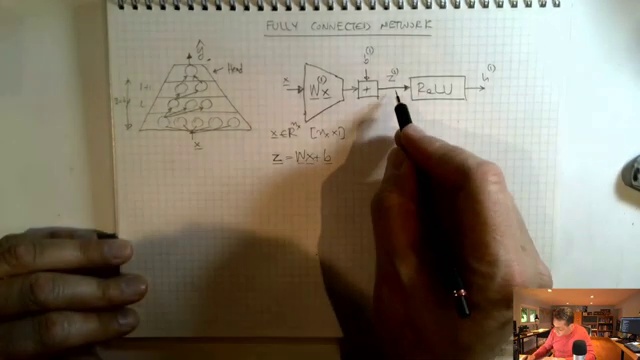 FULLY CONNECTED NETWORK
ŷ
Head
l+1
l
x
x
W⁽¹⁾x
b⁽¹⁾
+
z⁽¹⁾
ReLU
h⁽¹⁾
x ∈ ℝⁿˣ [nₓ×1]
z = Wx + b